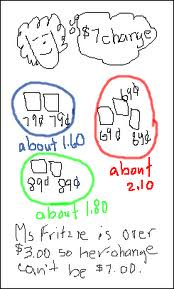 $7 change
79¢ 79¢
about 1.60
69¢
69¢ 69¢
about
2.10
89¢ 89¢
about 1.80
Ms Fritzie is over
$3.00 so her change
can't be $7.00.